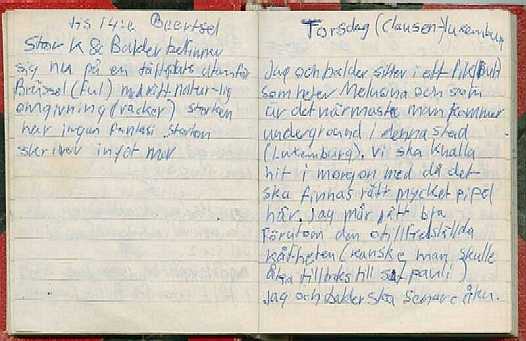 Beertsel
Stor K & Balder befinner
sig nu på en tältplats utanför
Bryssel (ful) med rätt naturlig
omgivning (vacker) storken
har ingen fantasi storken
skriver inget mer
Torsdag (Clausen) Luxemburg
Jag och balder sitter i ett fik (pub)
som heter Melusina och som
är det närmaste man kommer
underground i denna stad
(Luxemburg). Vi ska knalla
hit i morgon med då det
ska finnas rätt mycket pipel
här. Jag mår rätt bra
förutom den otillfredsställda
kåtheten (kanske man skulle
åka tillbaks till pauli)
Jag och balder ska senare åka.